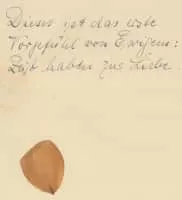 Dieses ist das erste
Vorgefühl von Ewigem:
Zeit haben zur Liebe.